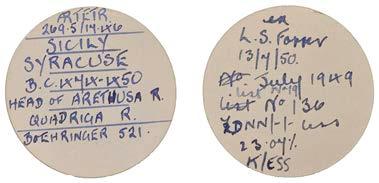 269.5/14.46
SICILY
SYRACUSE
B.C. 474-450
HEAD OF ARETHUSA R.
QUADRIGA R.
BOEHRINGER 521.
ex
L.S. Forrer
13/7/50.
July 1949
list No 136
23.04%
K/ESS